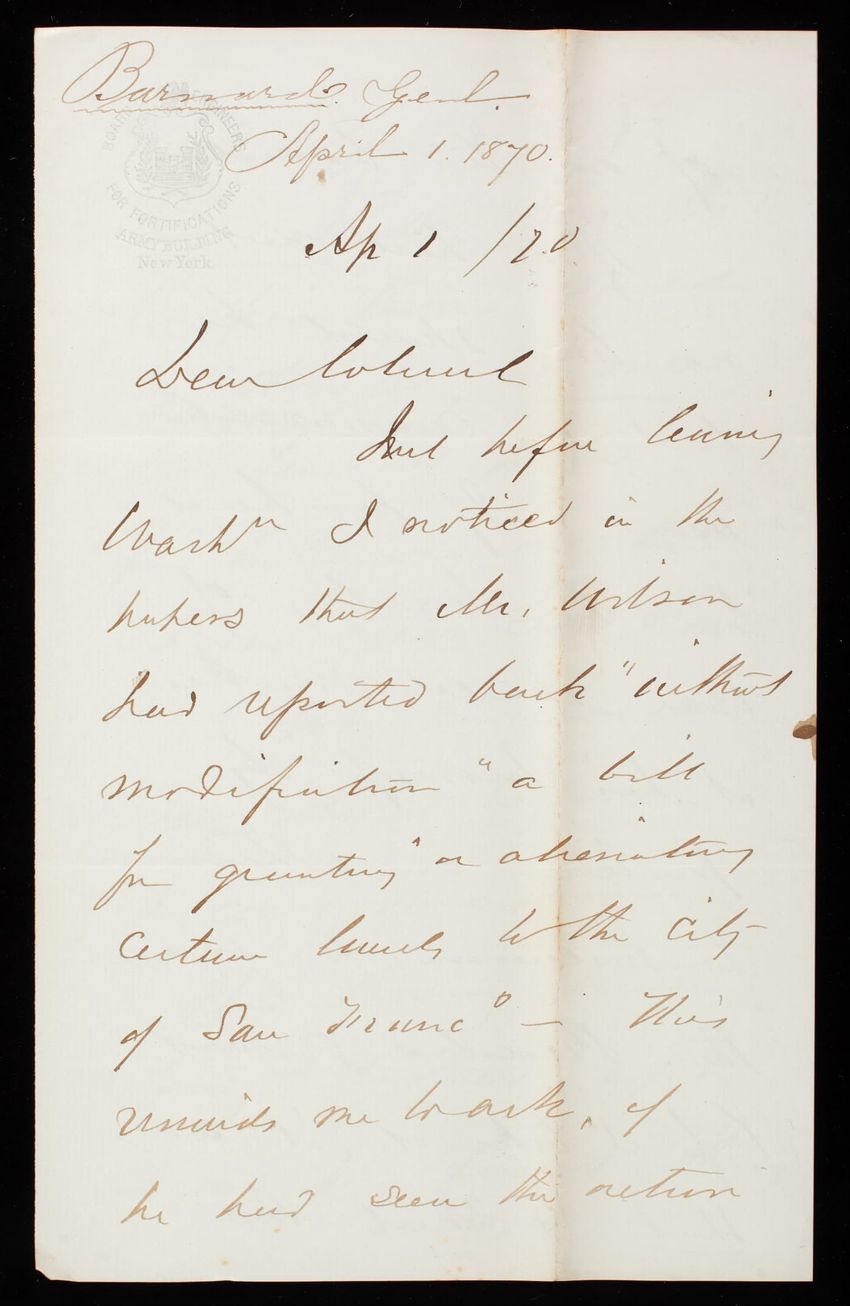 Barnard. Genl.
April 1. 1870.
BOARD OF ENGINEERS
FOR FORTIFICATIONS
ARMY BUILDING
New York.
Ap 1 /70
Dear Colonel
Just before leaving
Washn I noticed in the
papers that Mr. Wilson
had reported back "without
modification" a bill
for granting or alienating
certain lands to the city
of San Franco — This
reminds me to ask, if
he had seen the action